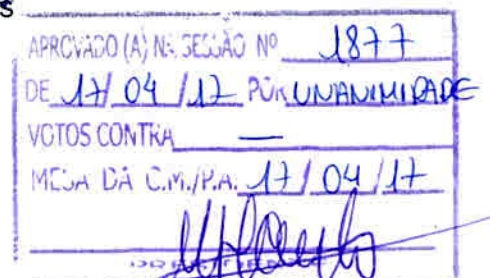 S
APROVADO (A) NA SESSÃO Nº 1877
DE 17/04/17 POR UNANIMIDADE
VOTOS CONTRA —
MESA DA C.M./P.A. 17/04/17